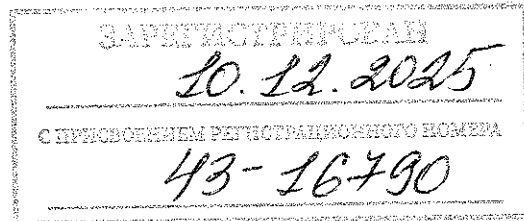 ЗАРЕГИСТРИРОВАН
10.12.2025
С ПРИСВОЕНИЕМ РЕГИСТРАЦИОННОГО НОМЕРА
43-16790